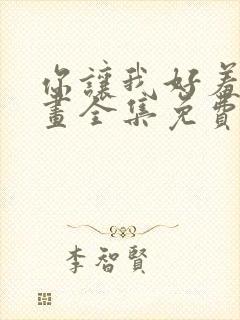 你讓我好羞
畫全集免費
李智賢